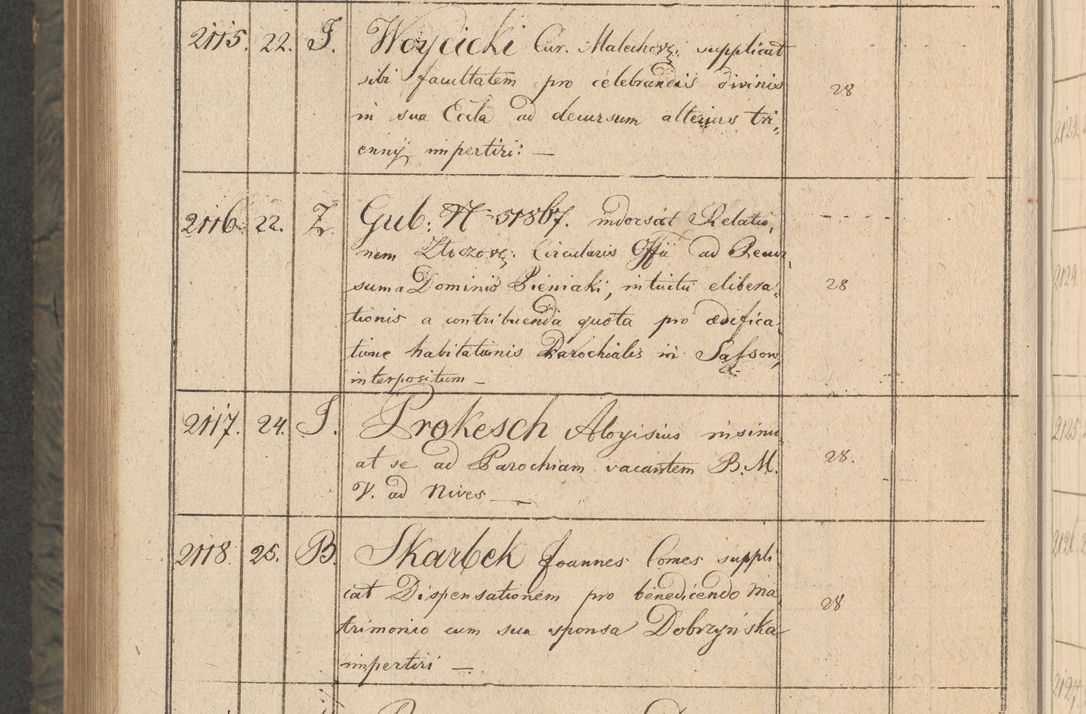 2115. 22. J. Woycicki Cur. Malechov; supplicat
sibi facultatem pro celebrandis divinis
in sua Eccla ad decursum alterius tri=
ennij impertiri: — 28
2116. 22. Z. Gub: N 51867. indorsat Relatio=
nem Zloczov: Circularis Offii ad Recur=
suma Dominio Pieniaki, intuitu elibera=
tionis a contribuenda quota pro ædifica
tione habitationis Parochialis in Sassow,
interpositum — 28
2117. 24. J. Prokesch Aloyisius insinu
at se ad Parochiam vacantem B. M.
V. ad Nives — 28.
2118. 25. B. Skarbek Joannes Comes suppli
cat Dispensationem pro benedicendo ma
trimonio cum sua sponsa Dobrzyńska
impertiri — 28